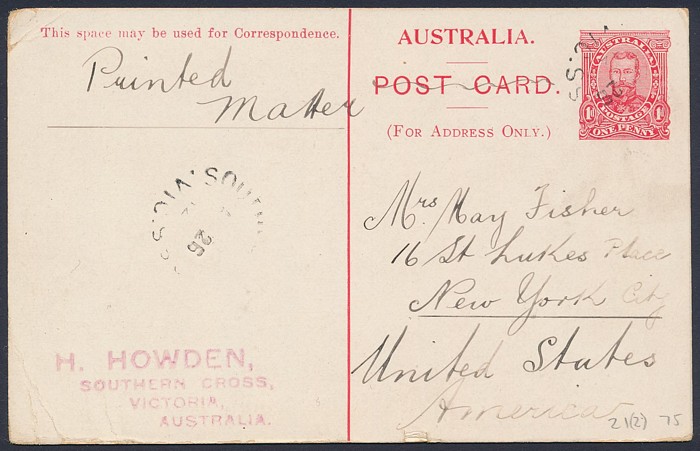 This space may be used for Correspondence.
Printed
Matter
SOUTH
VIC.
26
H. HOWDEN,
SOUTHERN CROSS,
VICTORIA,
AUSTRALIA.
AUSTRALIA.
POST CARD.
(FOR ADDRESS ONLY.)
AUSTRALIA
POSTAGE
1D 1D
ONE PENNY
VIC
Mrs May Fisher
16 St Lukes Place
New York City
United States
America
21(2) 75